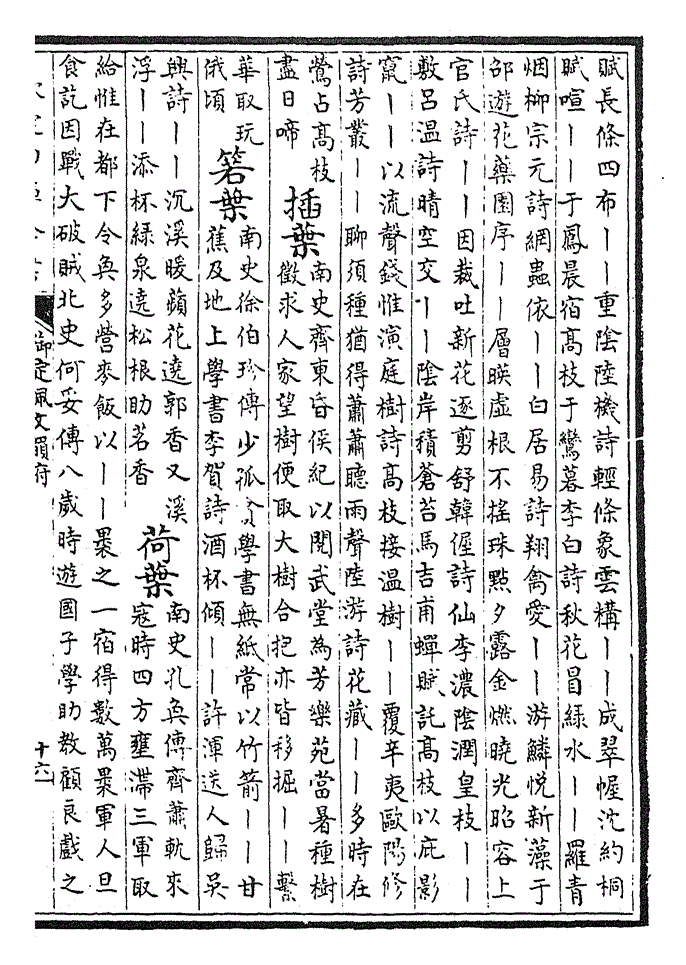 賦長條四布｜｜重陰陸機詩輕條象雲構｜｜成翠幄沈約桐
賦喧｜｜于鳳晨宿高枝于鸞暮李白詩秋花冒緑水｜｜羅青
烟柳宗元詩網蟲依｜｜白居易詩翔禽愛｜｜游鱗悅新藻于
邵遊花藥園序｜｜層暎虛根不搖珠點夕露金燃曉光昭容上
官氏詩｜｜因裁吐新花逐剪舒韓偓詩仙李濃陰潤皇枝｜｜
敷呂温詩晴空交｜｜陰岸積蒼苔馬吉甫蟬賦託高枝以庇影
窺｜｜以流聲錢惟演庭樹詩高枝接温樹｜｜覆辛夷歐陽修
詩芳叢｜｜聊須種猶得蕭蕭聽雨聲陸游詩花藏｜｜多時在
鶯占高枝
盡日啼
插葉
南史齊東昏侯紀以閱武堂為芳樂苑當暑種樹
徵求人家望樹便取大樹合抱亦皆移掘｜｜繫
華取玩
俄頃
箬葉
南史徐伯珍傳少孤貧學書無紙常以竹箭｜｜甘
蕉及地上學書李賀詩酒杯傾｜｜許渾送人歸吳
興詩｜｜沉溪暖蘋花遶郭香又溪
浮｜｜添杯緑泉遶松根助茗香
荷葉
南史孔奐傳齊蕭軌來
寇時四方壅滯三軍取
給惟在都下令奐多營麥飯以｜｜裹之一宿得數萬裹軍人旦
食訖因戰大破賊北史何妥傳八歲時遊國子學助教顧良戲之
御定佩文韻府
十六